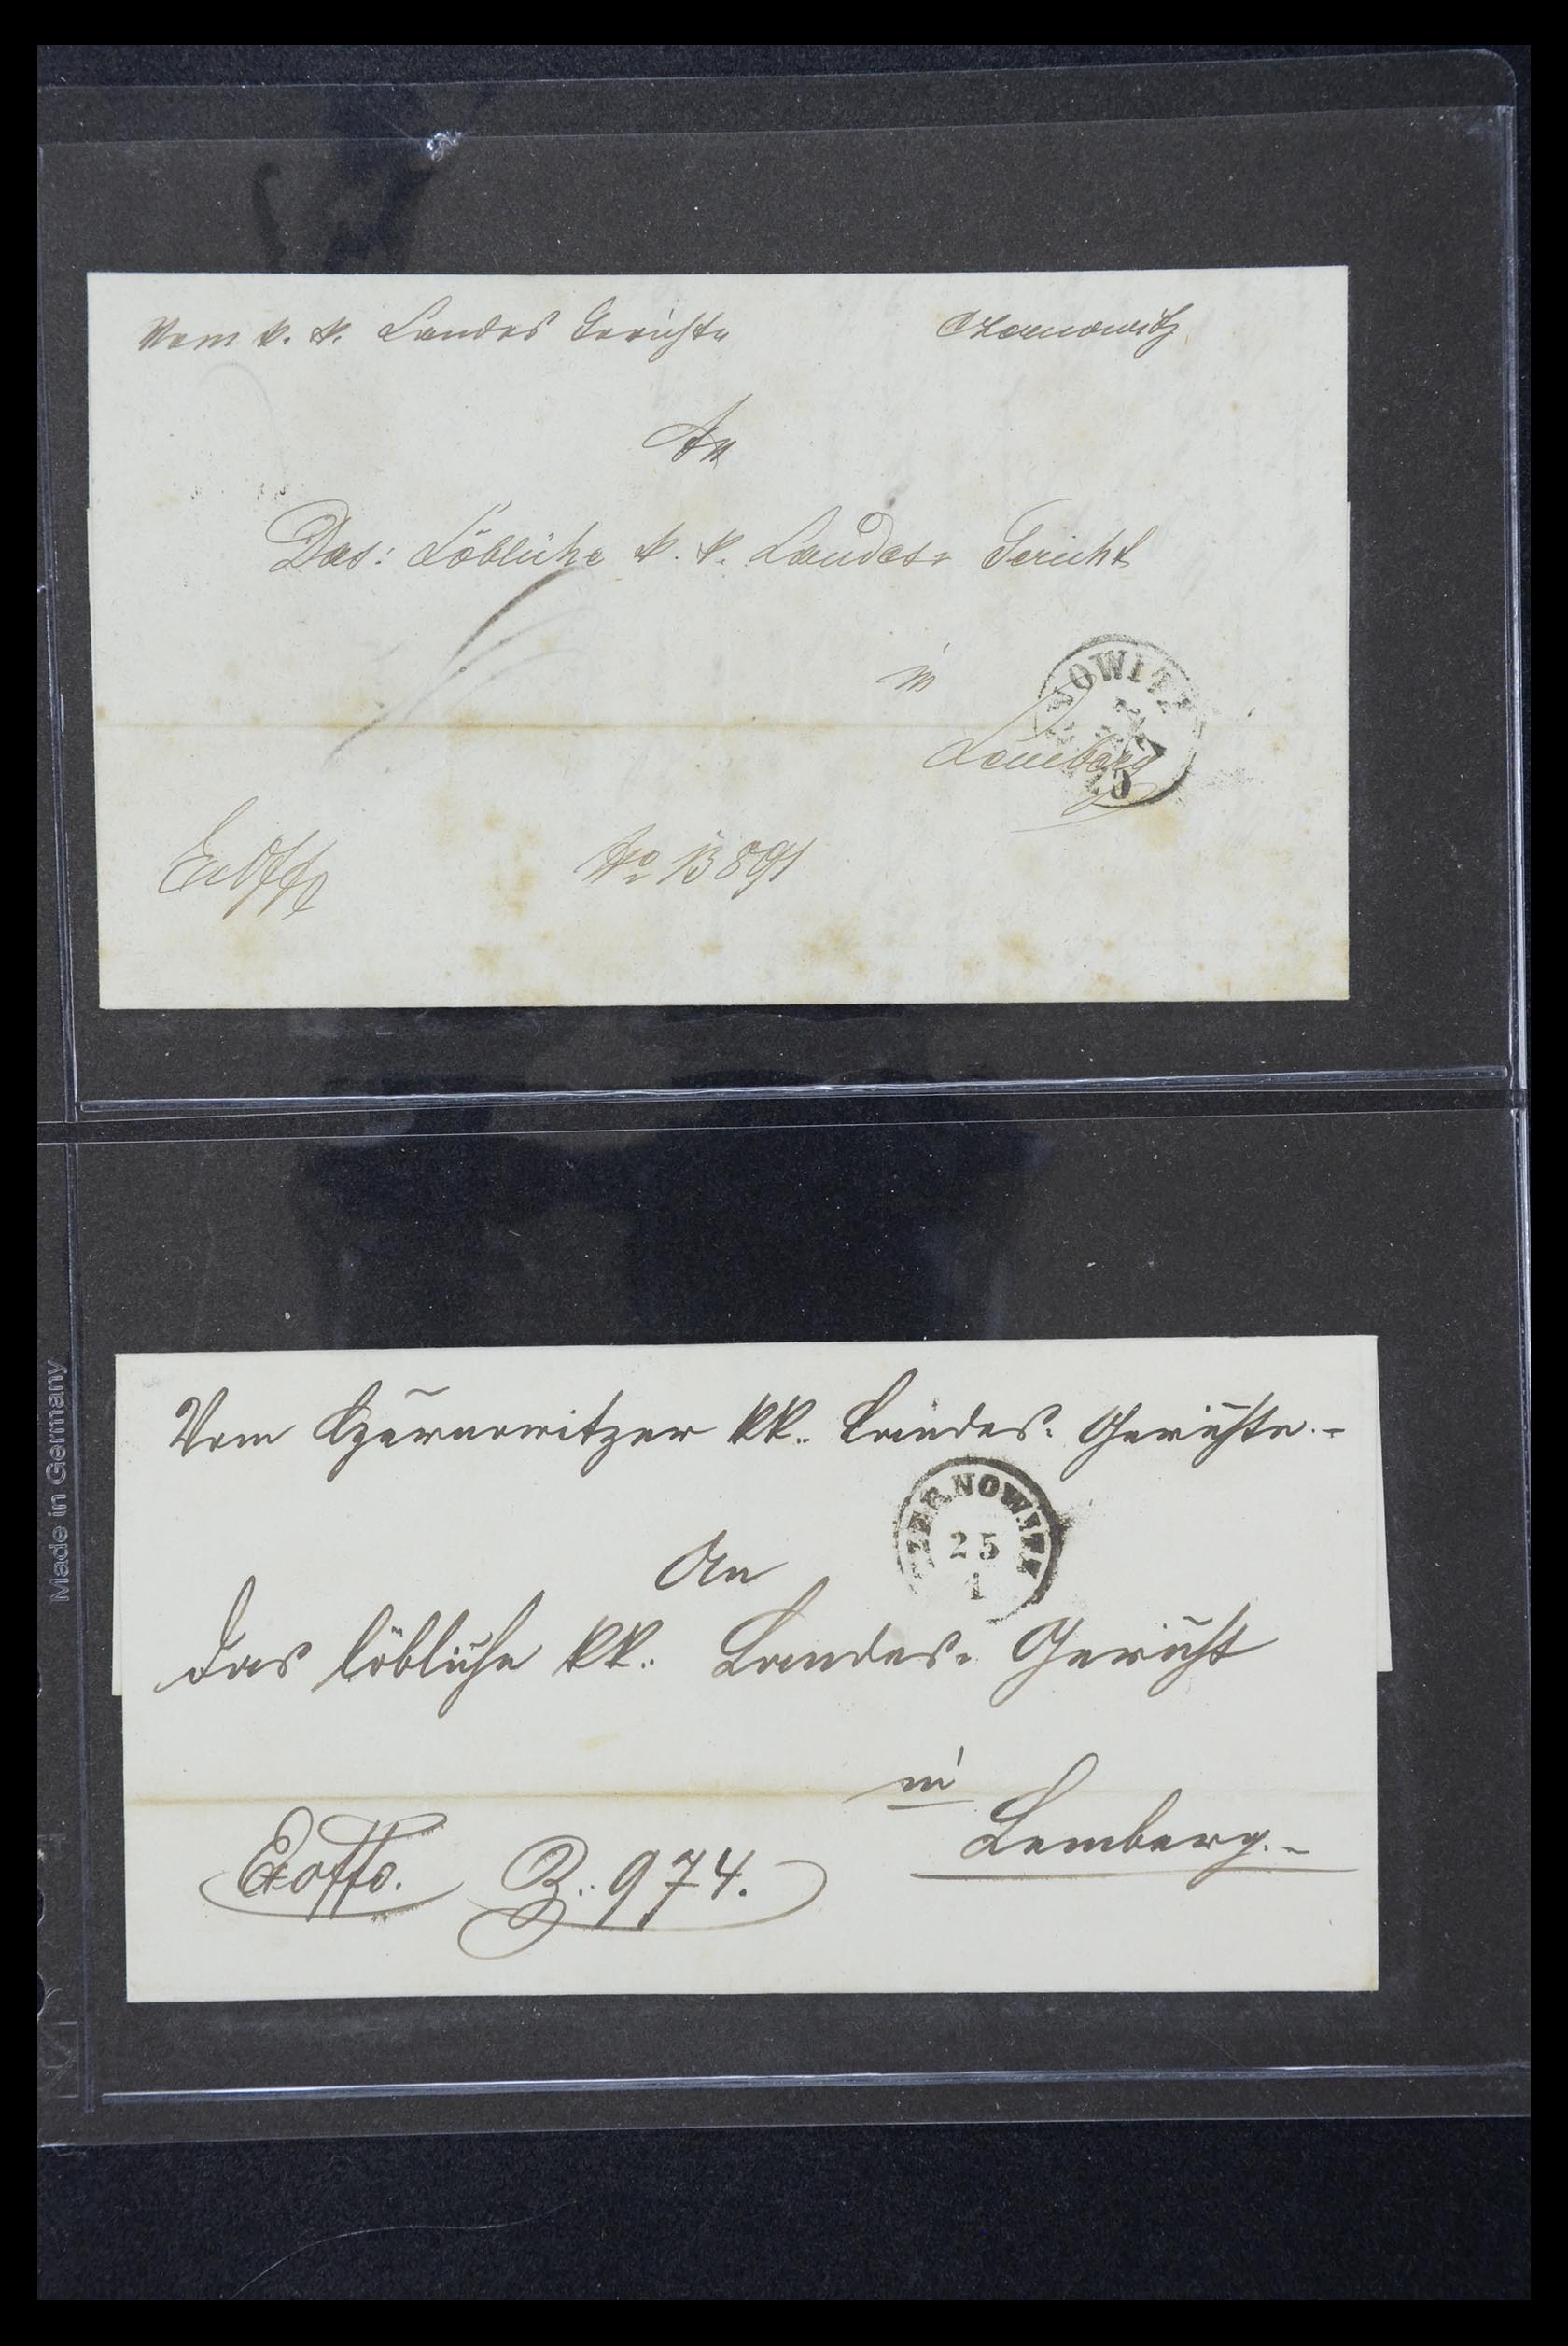 Vom k. k. Landes Gerichte Czernowitz
An
Das: Löbliche k. k. Landes= Gericht
in
NOWITZ
Lemberg
ExOffo No 13891
Vom Czernowitzer kk. Landes= Gerichte.-
CZERNOWITZ
25
1
An
das löbliche kk. Landes= Gericht
in
Lemberg.-
Exoffo. Z. 974.
Made in Germany